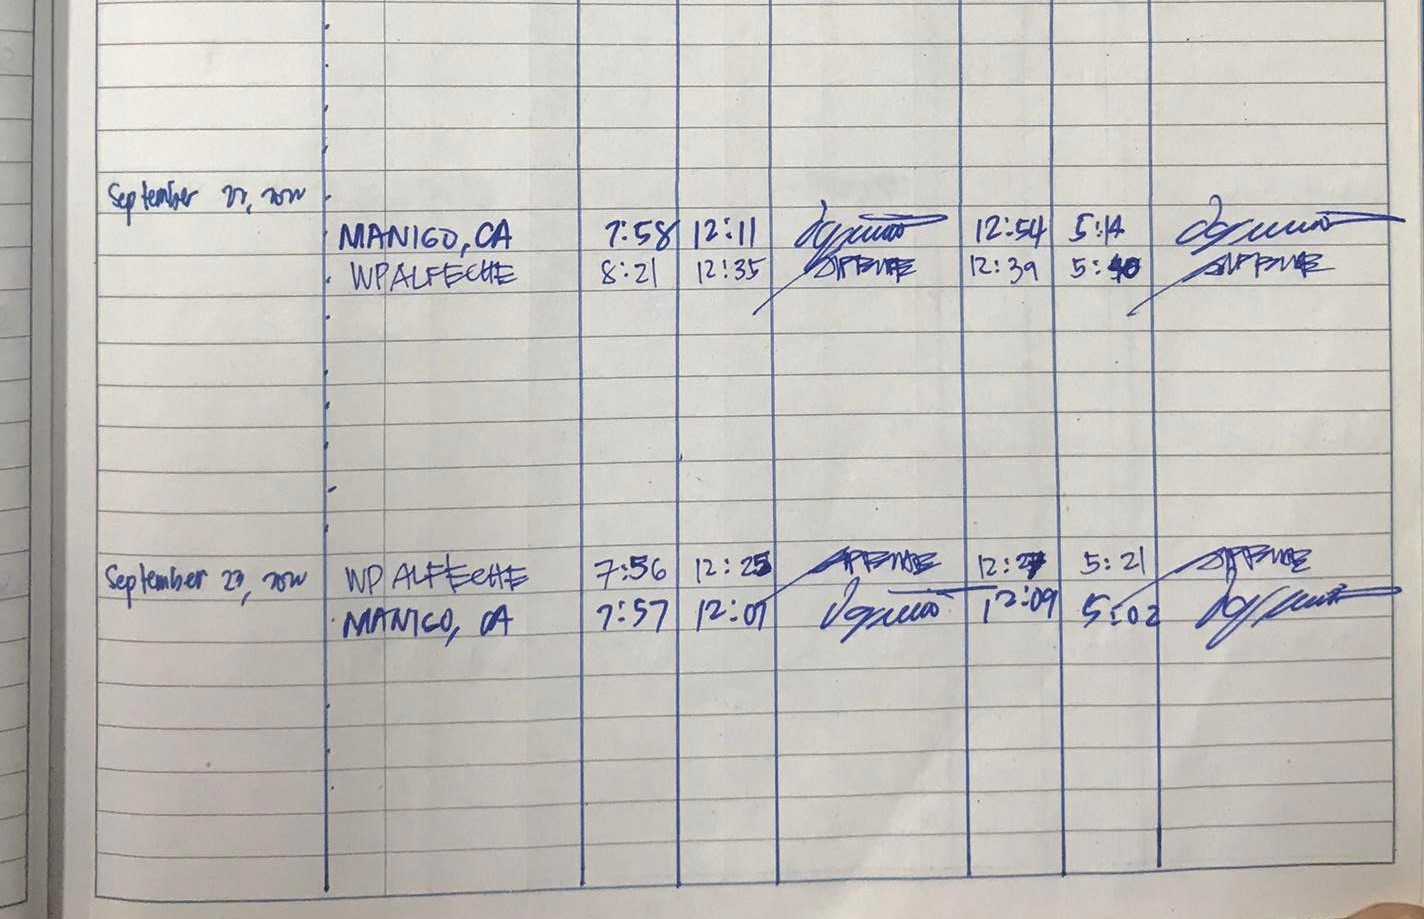 September 22, 2022
MANIGO, CA 7:58 12:11 12:54 5:14
WPALFECHE 8:21 12:35 12:39 5:40
September 23, 2022 WPALFECHE 7:56 12:25 12:27 5:21
MANIGO, CA 7:57 12:07 12:09 5:02